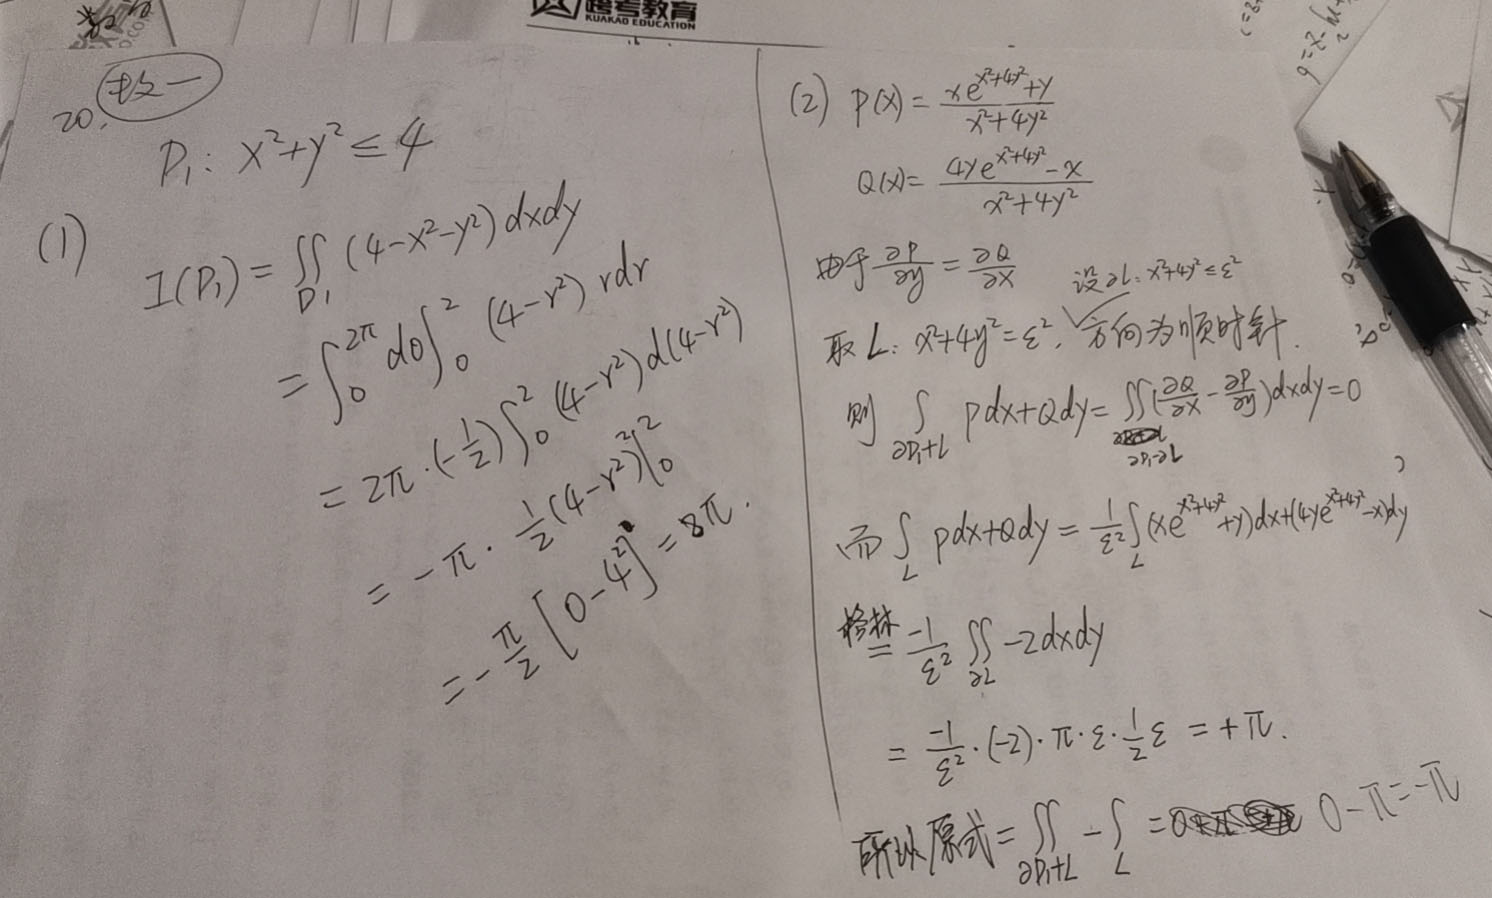 跨考教育
KUAKAO EDUCATION
20. 数一
D₁: x²+y²≤4
(1)
I(D₁) = ∬_{D₁} (4-x²-y²) dxdy
= ∫₀^{2π} dθ ∫₀² (4-r²) rdr
= 2π·(-1/2) ∫₀² (4-r²) d(4-r²)
= -π · 1/2 (4-r²)² |₀²
= -π/2 [0-4²] = 8π.
(2) P(x) = (xe^{x²+4y²}+y)/(x²+4y²)
Q(x) = (4ye^{x²+4y²}-x)/(x²+4y²)
由于 ∂P/∂y = ∂Q/∂x
设∂L: x²+4y²≤ε²
取 L: x²+4y²=ε², 方向为顺时针.
则 ∫_{∂D₁+L} Pdx+Qdy = ∬_{∂D₁-∂L} (∂Q/∂x - ∂P/∂y) dxdy = 0,
而 ∫_L Pdx+Qdy = 1/ε² ∫_L (xe^{x²+4y²}+y)dx+(4ye^{x²+4y²}-x)dy
格林 = -1/ε² ∬_{∂L} -2dxdy
= -1/ε² · (-2) · π · ε · 1/2 ε = +π.
所以原式 = ∬_{∂D₁+L} - ∫_L = 0-π=-π